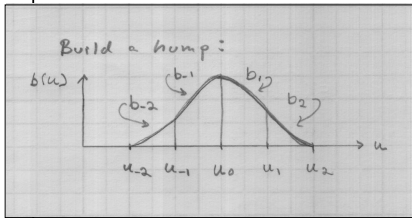 Build a hump:
b(u) b-1 b1
b-2 b2
u
u-2 u-1 u0 u1 u2